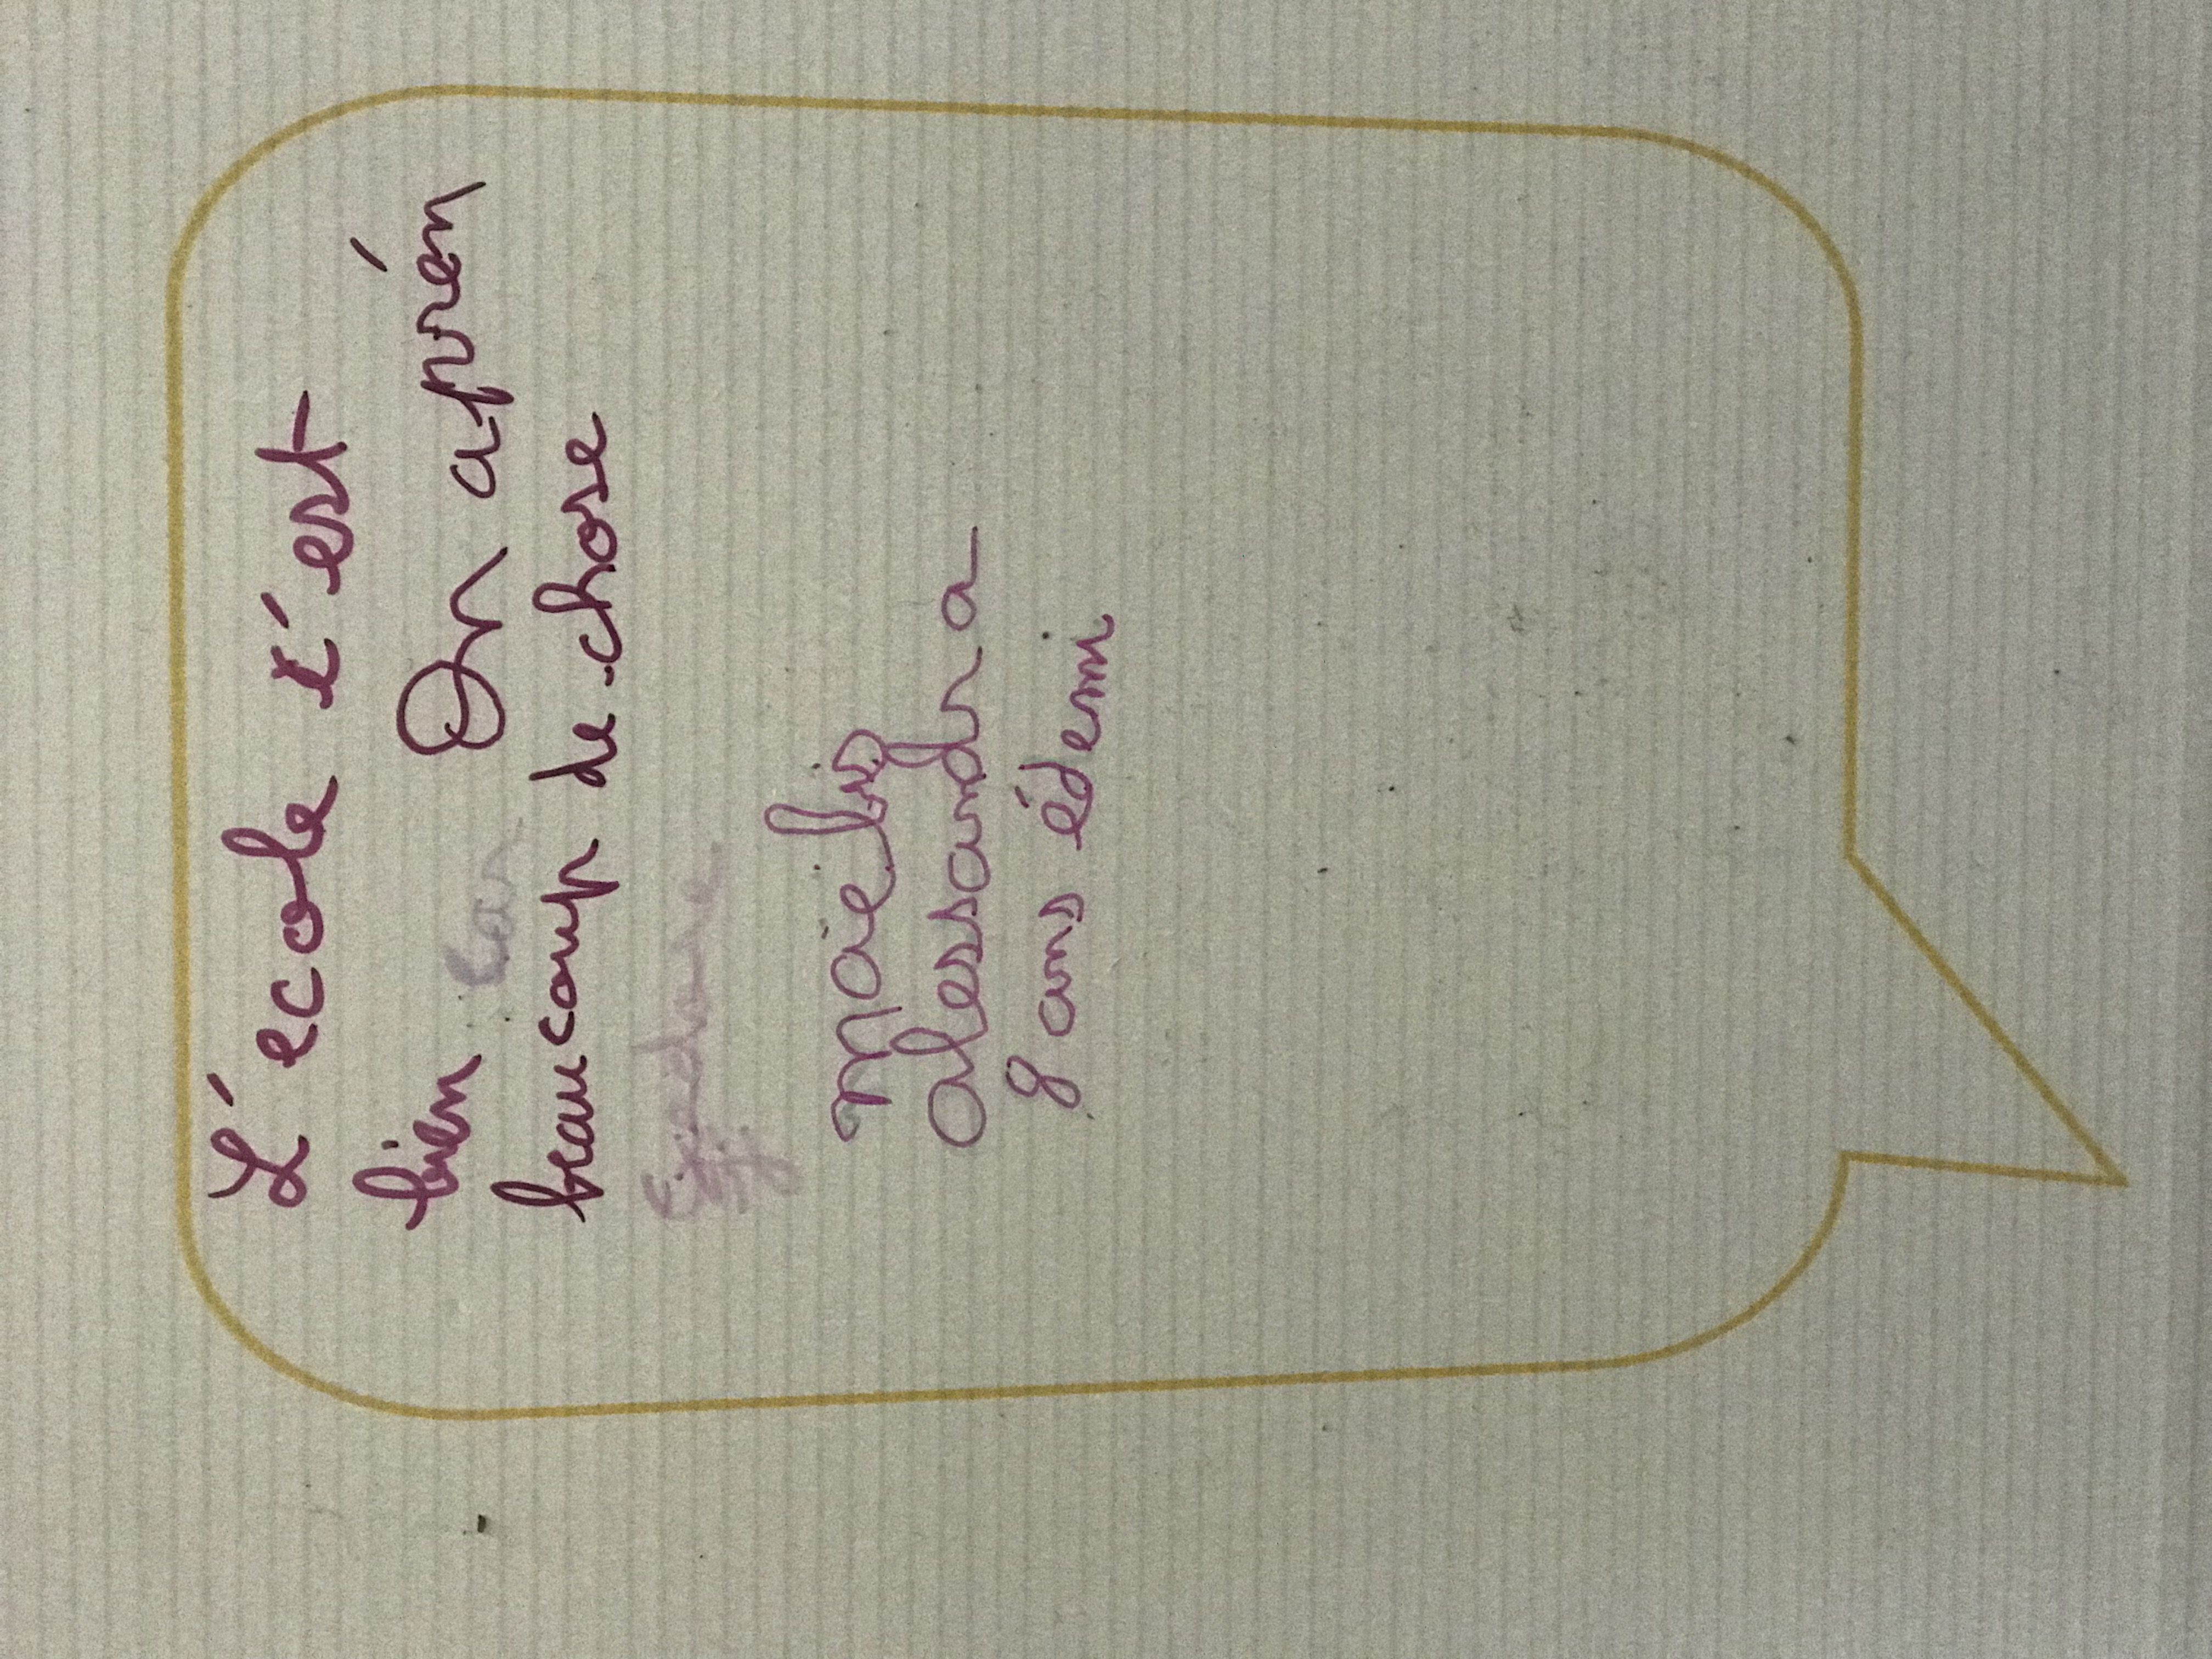 L'école c'est
bien car On aprén
beaucoup de chose
maelys
alessandra
8 ans édemi